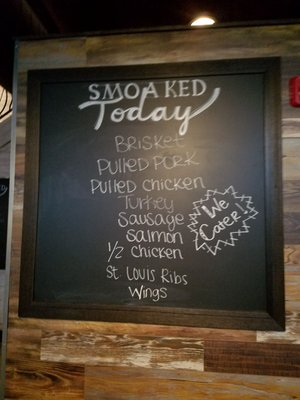 SMOAKED
Today
Brisket
Pulled Pork
Pulled chicken
Turkey
Sausage
Salmon
1/2 chicken
St. Louis Ribs
Wings
We
Cater!